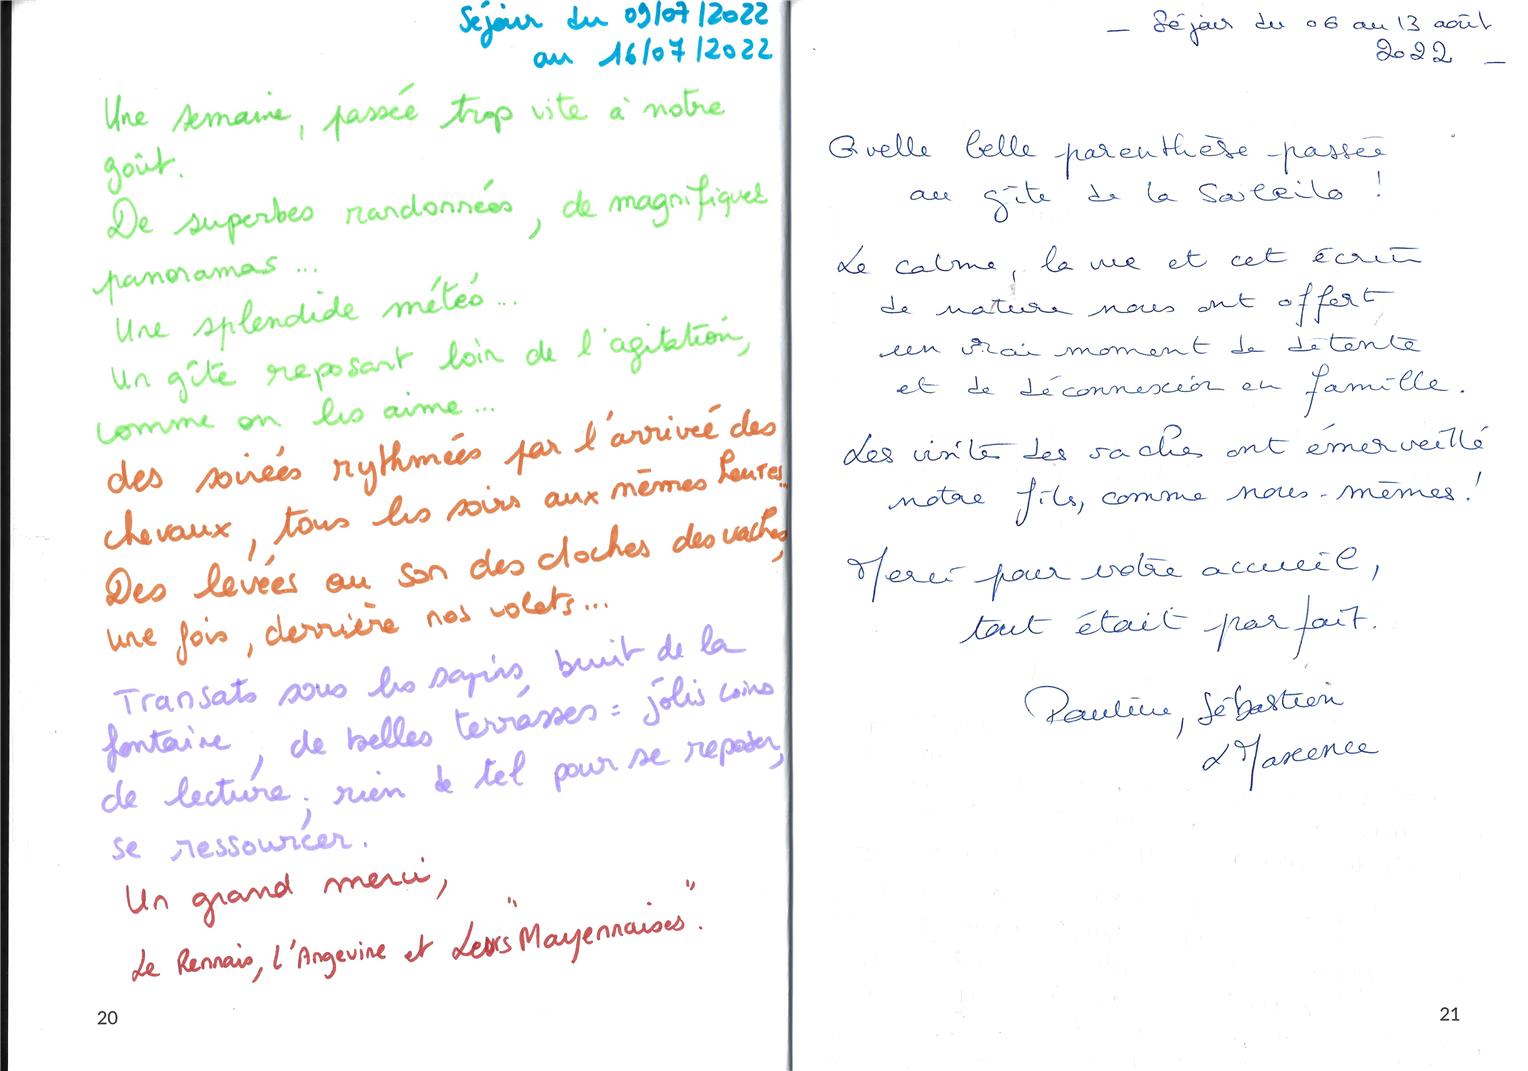 Séjour du 09/07/2022
au 16/07/2022
Une semaine, passée trop vite à notre
goût.
De superbes randonnées, de magnifiques
panoramas...
Une splendide météo...
Un gîte reposant loin de l'agitation,
comme on les aime...
des soirées rythmées par l'arrivée des
chevaux, tous les soirs aux mêmes heures.
Des levées au son des cloches des vaches,
une fois, derrière nos volets...
Transats sous les sapins, bruit de la
fontaine, de belles terrasses = jolis coins
de lecture; rien de tel pour se reposer,
se ressourcer.
Un grand merci,
Le Rennais, l'Angevine et Leurs "Mayennaises".
20
- Séjour du 06 au 13 août
2022 -
Quelle belle parenthèse passée
au gîte de la !
Le calme, la vue et cet écrin
de nature nous ont offert
un vrai moment de détente
et de déconnexion en famille.
Les visites des vaches ont émerveillé
notre fils, comme nous-mêmes!
Merci pour votre accueil,
tout était parfait.
Pauline, Sébastien
& Maxence
21